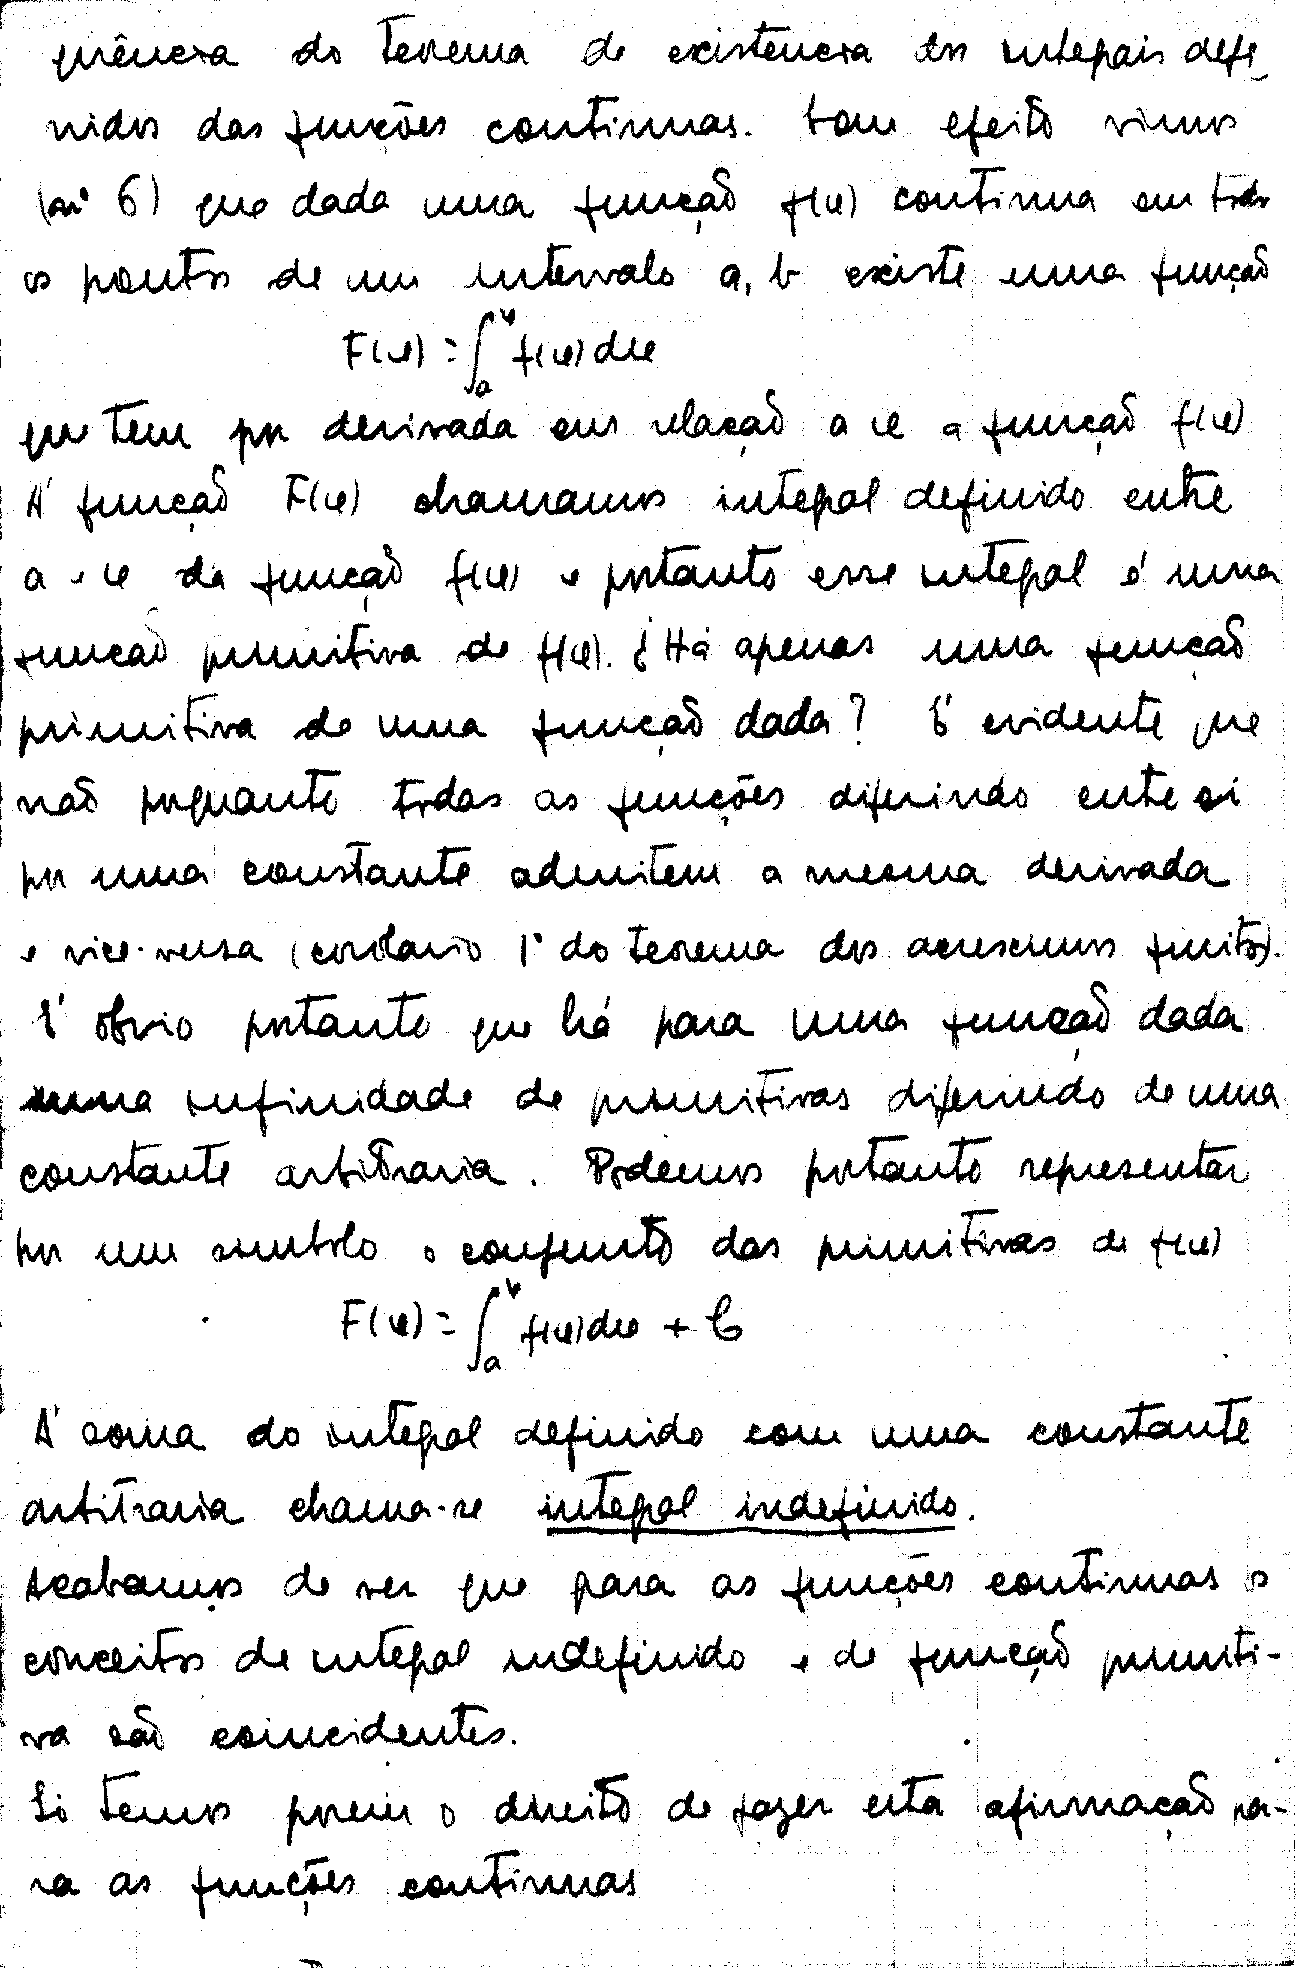 quência do teorema de existencia dos integrais defi-
nidos das funções continuas. Com efeito vimos
(nº 6) que dada uma função f(x) continua em todos
os pontos de um intervalo a, b existe uma função
F(x) = ∫ₐˣ f(x) dx
que tem por derivada em relação a x a função f(x)
Á função F(x) chamamos integral definido entre
a e x da função f(x) e portanto esse integral é uma
função primitiva de f(x). ¿Há apenas uma função
primitiva de uma função dada? É evidente que
não porquanto todas as funções diferindo entre si
por uma constante admitem a mesma derivada
e vice-versa (corolario 1º do teorema dos acrescimos finitos).
É obvio portanto que há para uma função dada
uma infinidade de primitivas diferindo de uma
constante arbitraria. Podemos portanto representar
por um simbolo o conjunto das primitivas de f(x)
F(x) = ∫ₐˣ f(x) dx + C
Á soma do integral definido com uma constante
arbitraria chama-se integral indefinido.
Acabamos de ver que para as funções continuas os
conceitos de integral indefinido e de função primiti-
va são coincidentes.
Só temos porem o direito de fazer esta afirmação pa-
ra as funções continuas